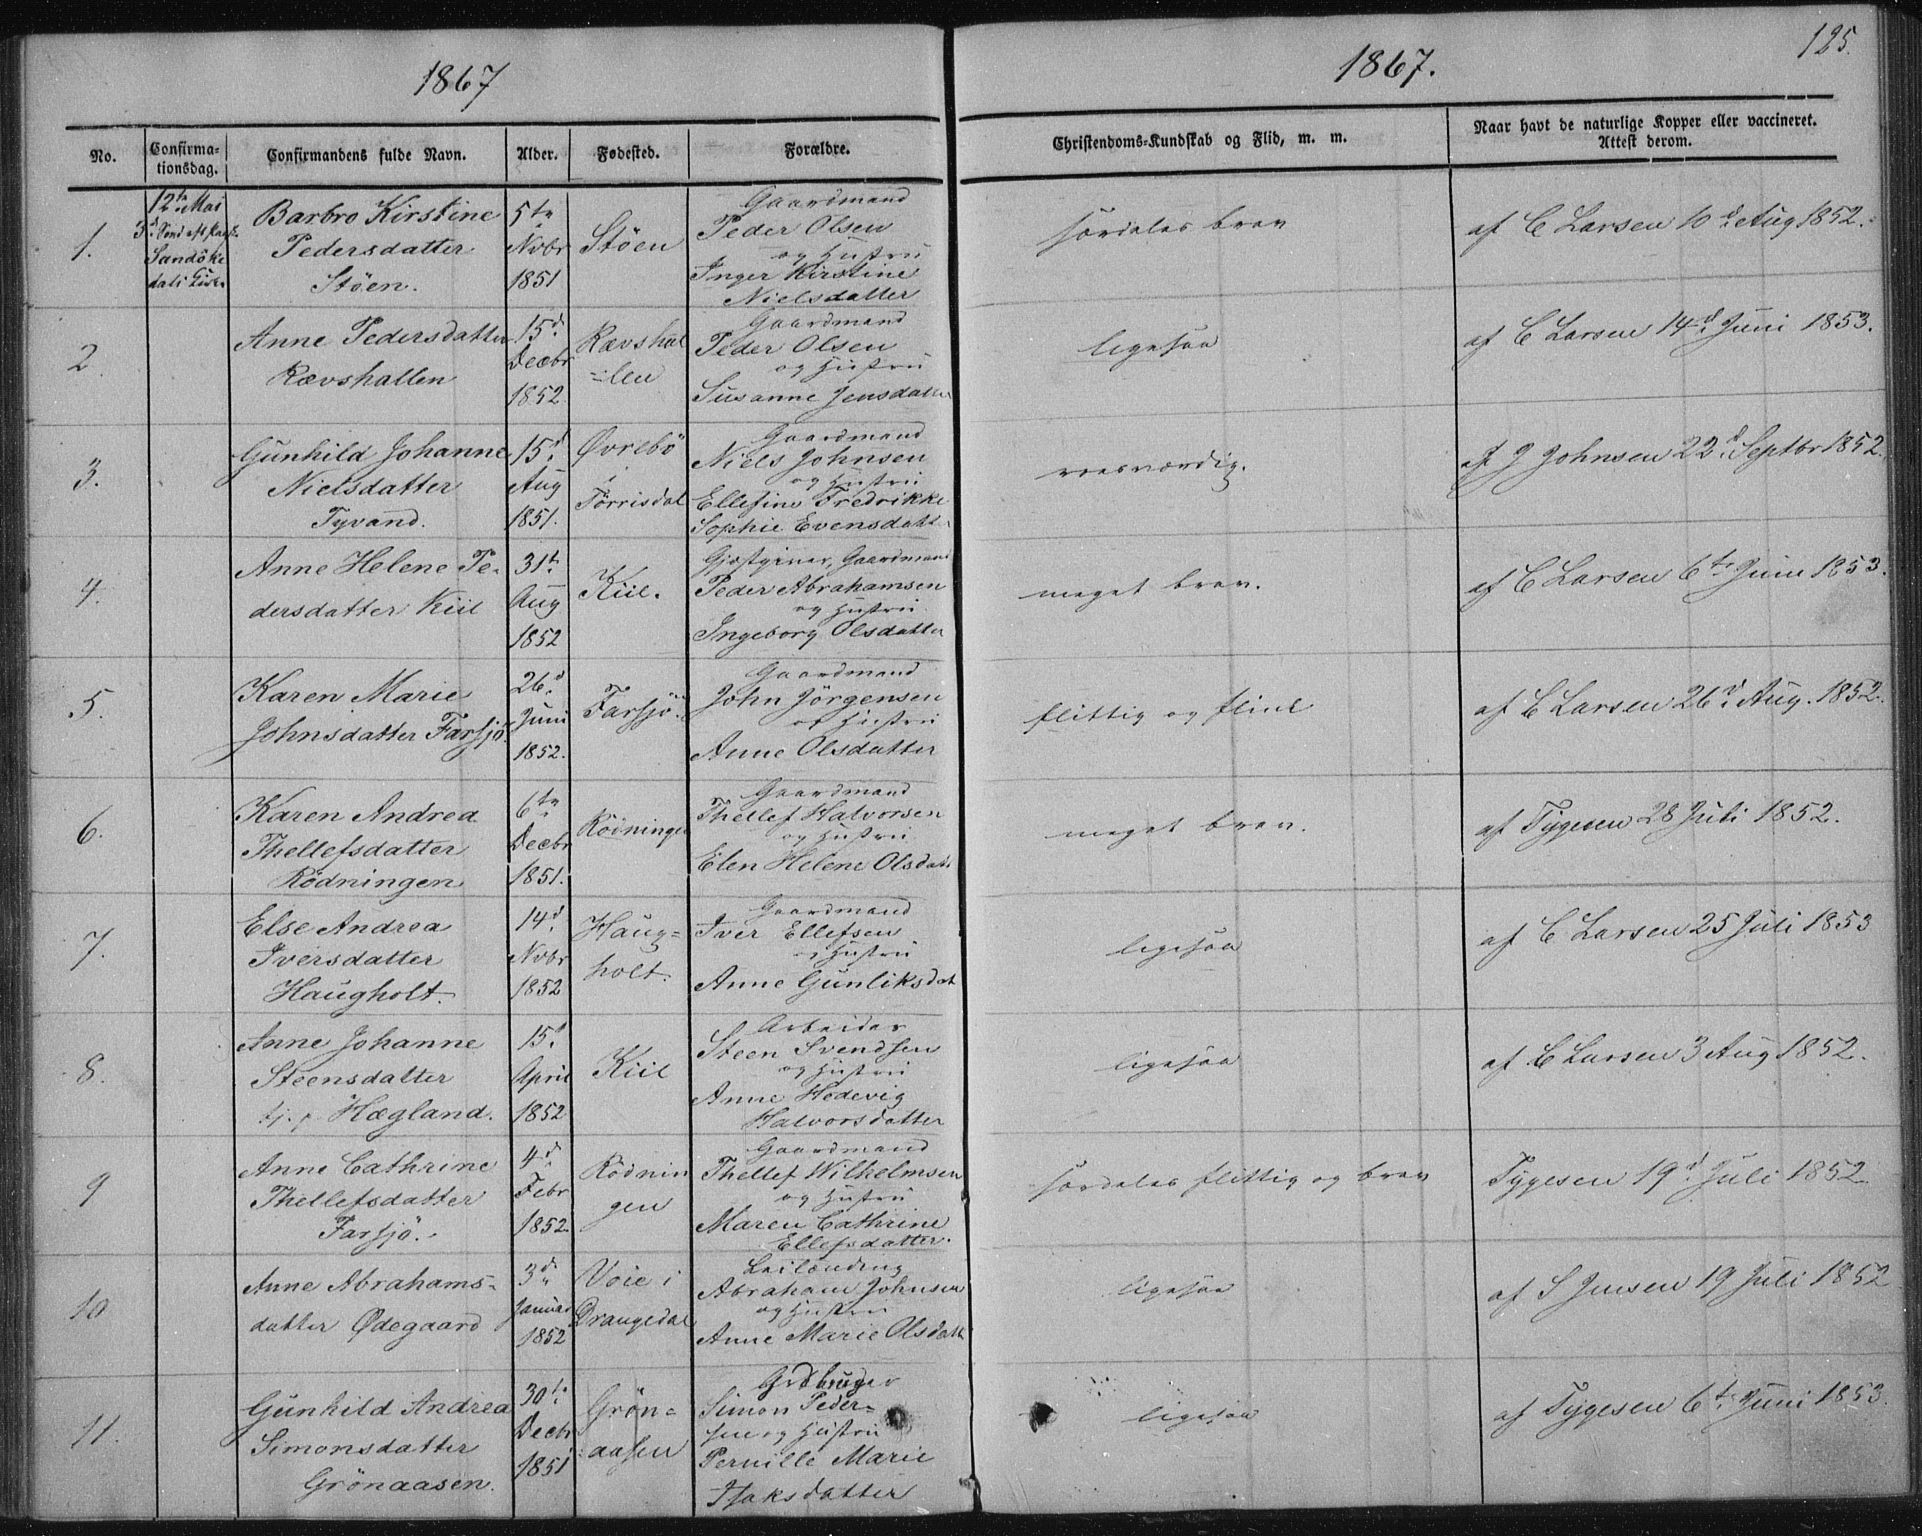 1867
1867.
125.
No.
Confirma-
tionsdag.
Confirmandens fulde Navn.
Alder.
Fødested.
Forældre.
Christendoms-Kundskab og Flid, m. m.
Naar havt de naturlige Kopper eller vaccineret.
Attest derom.
1.
12te Mai
Sandöke
Barbro Kirstine
Pedersdatter
Stöen.
5te
Nvbr
1851
Stöen
Gaardmand
Peder Olsen
og Hustru
Inger Kirstine
Nielsdatter
særdeles brav
af C Larsen 10d Aug 1852.
2.
Anne Pedersdatter
Rævshallen
15d
Decbr
1852
Rævshal
=len
Gaardmand
Peder Olsen
og Hustru
Susanne Jensdatter
ligesaa
af C Larsen 14d Juni 1853.
3.
Gunhild Johanne
Nielsdatter
Tyvand.
15d
Aug
1851.
Øvrebö
i
Torrisdal
Gaardmand
Niels Johnsen
og Hustru
Ellefine Fredrikke
Sophie Evensdatt
roesværdig.
af J Johnsen 22d Septbr 1852.
4.
Anne Helene Pe-
dersdatter Kiil
31te
Aug
1852
Kiil.
Gjæstgiver, Gaardmand
Peder Abrahamsen
og Hustru
Ingeborg Olsdatter
meget brav.
af C Larsen 6te Juni 1853.
5.
Karen Marie
Johnsdatter Farsjö
26d
Juni
1852.
Farsjö.
Gaardmand
John Jörgensen
og Hustru
Anne Olsdatter
flittig og flink
af C Larsen 26d Aug. 1852.
6.
Karen Andrea
Thellefsdatter
Rödningen
6te
Decbr
1851.
Rödningen
Gaardmand
Thellef Halvorsen
og Hustru
Elen Helene Olsdatt
meget brav.
af Tygesen 28 Juli 1852.
7.
Else Andrea
Iversdatter
Haugholt.
14d
Nvbr
1852
Haug=
holt.
Gaardmand
Iver Ellefsen
og Hustru
Anne Gunliksdat
ligesaa
af C Larsen 25 Juli 1853
8.
Anne Johanne
Steensdatter
tj. p Hægland.
15d
April
1852
Kiil
Arbeider
Steen Svendsen
og Hustru
Anne Hedevig
Halvorsdatter
ligesaa
af C Larsen 3 Aug 1852.
9
Anne Cathrine
Thellefsdatter
Farsjö.
4d
Febr
1852.
Rödnin
gen
Gaardmand
Thellef Wilhelmsen
og Hustru
Maren Cathrine
Ellefsdatter.
særdeles flittig og brav
Tygesen 19d Juli 1852
10
Anne Abrahams-
datter Ødegaard
3d
Januar
1852
Voie i
Drangedal
Leilænding
Abraham Johnsen
og Hustru
Anne Marie Olsdatt
ligesaa
af S Jensen 19 Juli 1852
11.
Gunhild Andrea
Simonsdatter
Grönaasen.
30te
Decbr
1851
Grön=
=aasen
Grdbruger
Simon Peder=
sen og Hustru
Pernille Marie
Isaksdatter
ligesaa
af Tygesen 6te Juni 1853.